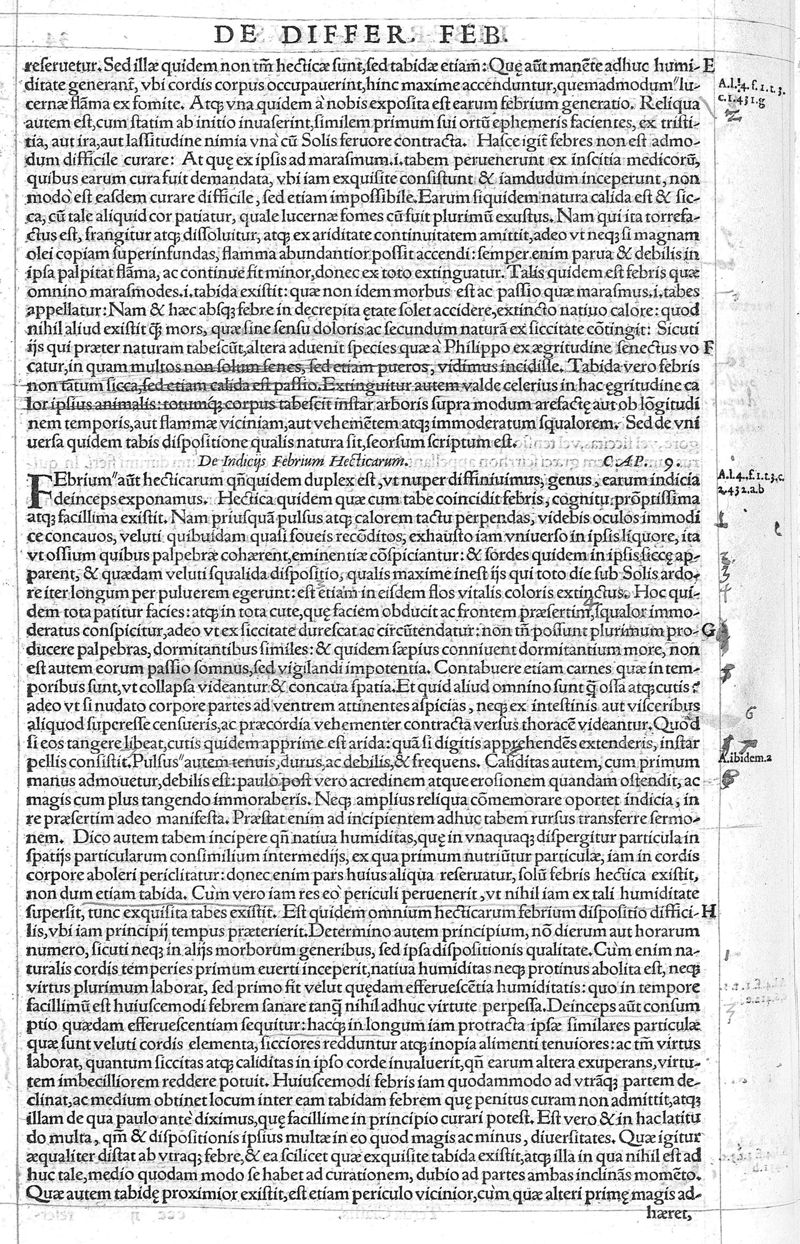 DE DIFFER. FEB.
reseruetur. Sed illæ quidem non tm̃ hecticæ sunt, sed tabidæ etiam: Quę aũt manẽte adhuc humi- E
ditate generant̃, vbi cordis corpus occupauerint, hinc maxime accenduntur, quemadmodum" lu- A.l.4.f.1.t.3.
cernæ flãma ex fomite. Atq; vna quidem à nobis exposita est earum febrium generatio. Reliqua c.1.431.g
autem est, cum statim ab initio inuaserint, similem primum sui ortũ ephemeris facientes, ex tristi-
tia, aut ira, aut lassitudine nimia vna cũ Solis feruore contracta. Hasce igit̃ febres non est admo-
dum difficile curare: At quę ex ipsis ad marasmum .i. tabem peruenerunt ex inscitia medicorũ,
quibus earum cura fuit demandata, vbi iam exquisite consistunt & iamdudum inceperunt, non
modo est easdem curare difficile, sed etiam impossibile. Earum siquidem natura calida est & sic-
ca, cũ tale aliquid cor patiatur, quale lucernæ fomes cũ fuit plurimũ exustus. Nam qui ita torrefa-
ctus est, frangitur atq; dissoluitur, atq; ex ariditate continuitatem amittit, adeo vt neq; si magnam
olei copiam superinfundas, flamma abundantior possit accendi: semper enim parua & debilis in
ipsa palpitat flãma, ac continue fit minor, donec ex toto extinguatur. Talis quidem est febris quæ
omnino marasmodes .i. tabida existit: quæ non idem morbus est ac passio quæ marasmus .i. tabes
appellatur: Nam & hæc absq; febre in decrepita ętate solet accidere, extincto natiuo calore: quod
nihil aliud existit q̃ mors, quæ sine sensu doloris ac secundum naturã ex siccitate cõtingit: Sicuti
ijs qui præter naturam tabescũt, altera aduenit species quæ à Philippo ex ægritudine senectus vo F
catur, in quam multos non solum senes, sed etiam pueros, vidimus incidisse. Tabida vero febris
non tãtum sicca, sed etiam calida est passio. Extinguitur autem valde celerius in hac ęgritudine ca
lor ipsius animalis: totumq; corpus tabescit instar arboris supra modum arefactę aut ob lõgitudi
nem temporis, aut flammæ viciniam, aut vehemẽtem atq; immoderatum squalorem. Sed de vni
uersa quidem tabis dispositione qualis natura sit, seorsum scriptum est.
De Indicijs Febrium Hecticarum. CAP. 9.
FEbrium" aũt hecticarum qñquidem duplex est, vt nuper diffiniuimus, genus, earum indicia A.l.4.f.1.t.3.c.
deinceps exponamus. Hectica quidem quæ cum tabe coincidit febris, cognitu prõptissima 2.432.a.b
atq; facillima existit. Nam priusquã pulsus atq; calorem tactu perpendas, videbis oculos immodi
ce concauos, veluti quibuidam quasi foueis recõditos, exhausto iam vniuerso in ipsis liquore, ita
vt ossium quibus palpebræ cohærent, eminentiæ cõspiciantur: & sordes quidem in ipsis siccę ap-
parent, & quædam veluti squalida dispositio, qualis maxime inest ijs qui toto die sub Solis ardo-
re iter longum per puluerem egerunt: est etiam in eisdem flos vitalis coloris extinctus. Hoc qui-
dem tota patitur facies: atq; in tota cute, quę faciem obducit ac frontem præsertim, squalor immo-
deratus conspicitur, adeo vt ex siccitate durescat ac circũtendatur: non tñ possunt plurimum pro- G
ducere palpebras, dormitantibus similes: & quidem sæpius conniuent dormitantium more, non
est autem eorum passio somnus, sed vigilandi impotentia. Contabuere etiam carnes quæ in tem-
poribus sunt, vt collapsa videantur & concaua spatia. Et quid aliud omnino sunt q̃ ossa atq; cutis?
adeo vt si nudato corpore partes ad ventrem attinentes aspicias, neq; ex intestinis aut visceribus
aliquod superesse censueris, ac præcordia vehementer contracta versus thoracẽ videantur. Quòd
si eos tangere libeat, cutis quidem apprime est arida: quã si digitis apprehendẽs extenderis, instar
pellis consistit. Pulsus" autem tenuis, durus, ac debilis, & frequens. Caliditas autem, cum primum A.ibidem.2
manus admouetur, debilis est: paulo post vero acredinem atque erosionem quandam ostendit, ac
magis cum plus tangendo immoraberis. Neq; amplius reliqua cõmemorare oportet indicia, in
re præsertim adeo manifesta. Præstat enim ad incipientem adhuc tabem rursus transferre sermo-
nem. Dico autem tabem incipere qñ natiua humiditas, quę in vnaquaq; dispergitur particula in
spatijs particularum consimilium intermedijs, ex qua primum nutriũtur particulæ, iam in cordis
corpore aboleri periclitatur: donec enim pars huius aliqua reseruatur, solũ febris hectica existit,
non dum etiam tabida. Cùm vero iam res eò periculi peruenerit, vt nihil iam ex tali humiditate
supersit, tunc exquisita tabes existit. Est quidem omnium hecticarum febrium dispositio diffici- H
lis, vbi iam principij tempus præterierit. Determino autem principium, nõ dierum aut horarum
numero, sicuti neq; in alijs morborum generibus, sed ipsa dispositionis qualitate. Cùm enim na-
turalis cordis temperies primum euerti inceperit, natiua humiditas neq; protinus abolita est, neq;
virtus plurimum laborat, sed primo fit velut quędam efferuescẽtia humiditatis: quo in tempore
facillimũ est huiuscemodi febrem sanare tanq̃ nihil adhuc virtute perpessa. Deinceps aũt consum
ptio quædam efferuescentiam sequitur: hacq; in longum iam protracta ipsæ similares particulæ
quæ sunt veluti cordis elementa, sicciores redduntur atq; inopia alimenti tenuiores: ac tm̃ virtus
laborat, quantum siccitas atq; caliditas in ipso corde inualuerit, qñ earum altera exuperans, virtu-
tem imbecilliorem reddere potuit. Huiuscemodi febris iam quodammodo ad vtrãq; partem de-
clinat, ac medium obtinet locum inter eam tabidam febrem quę penitus curam non admittit, atq;
illam de qua paulo antè diximus, quę facillime in principio curari potest. Est vero & in hac latitu
do multa, qm̃ & dispositionis ipsius multæ in eo quod magis ac minus, diuersitates. Quæ igitur
æqualiter distat ab vtraq; febre, & ea scilicet quæ exquisite tabida existit, atq; illa in qua nihil est ad
huc tale, medio quodam modo se habet ad curationem, dubio ad partes ambas inclinãs momẽto.
Quæ autem tabidę proximior existit, est etiam periculo vicinior, cùm quæ alteri primę magis ad-
hæret,